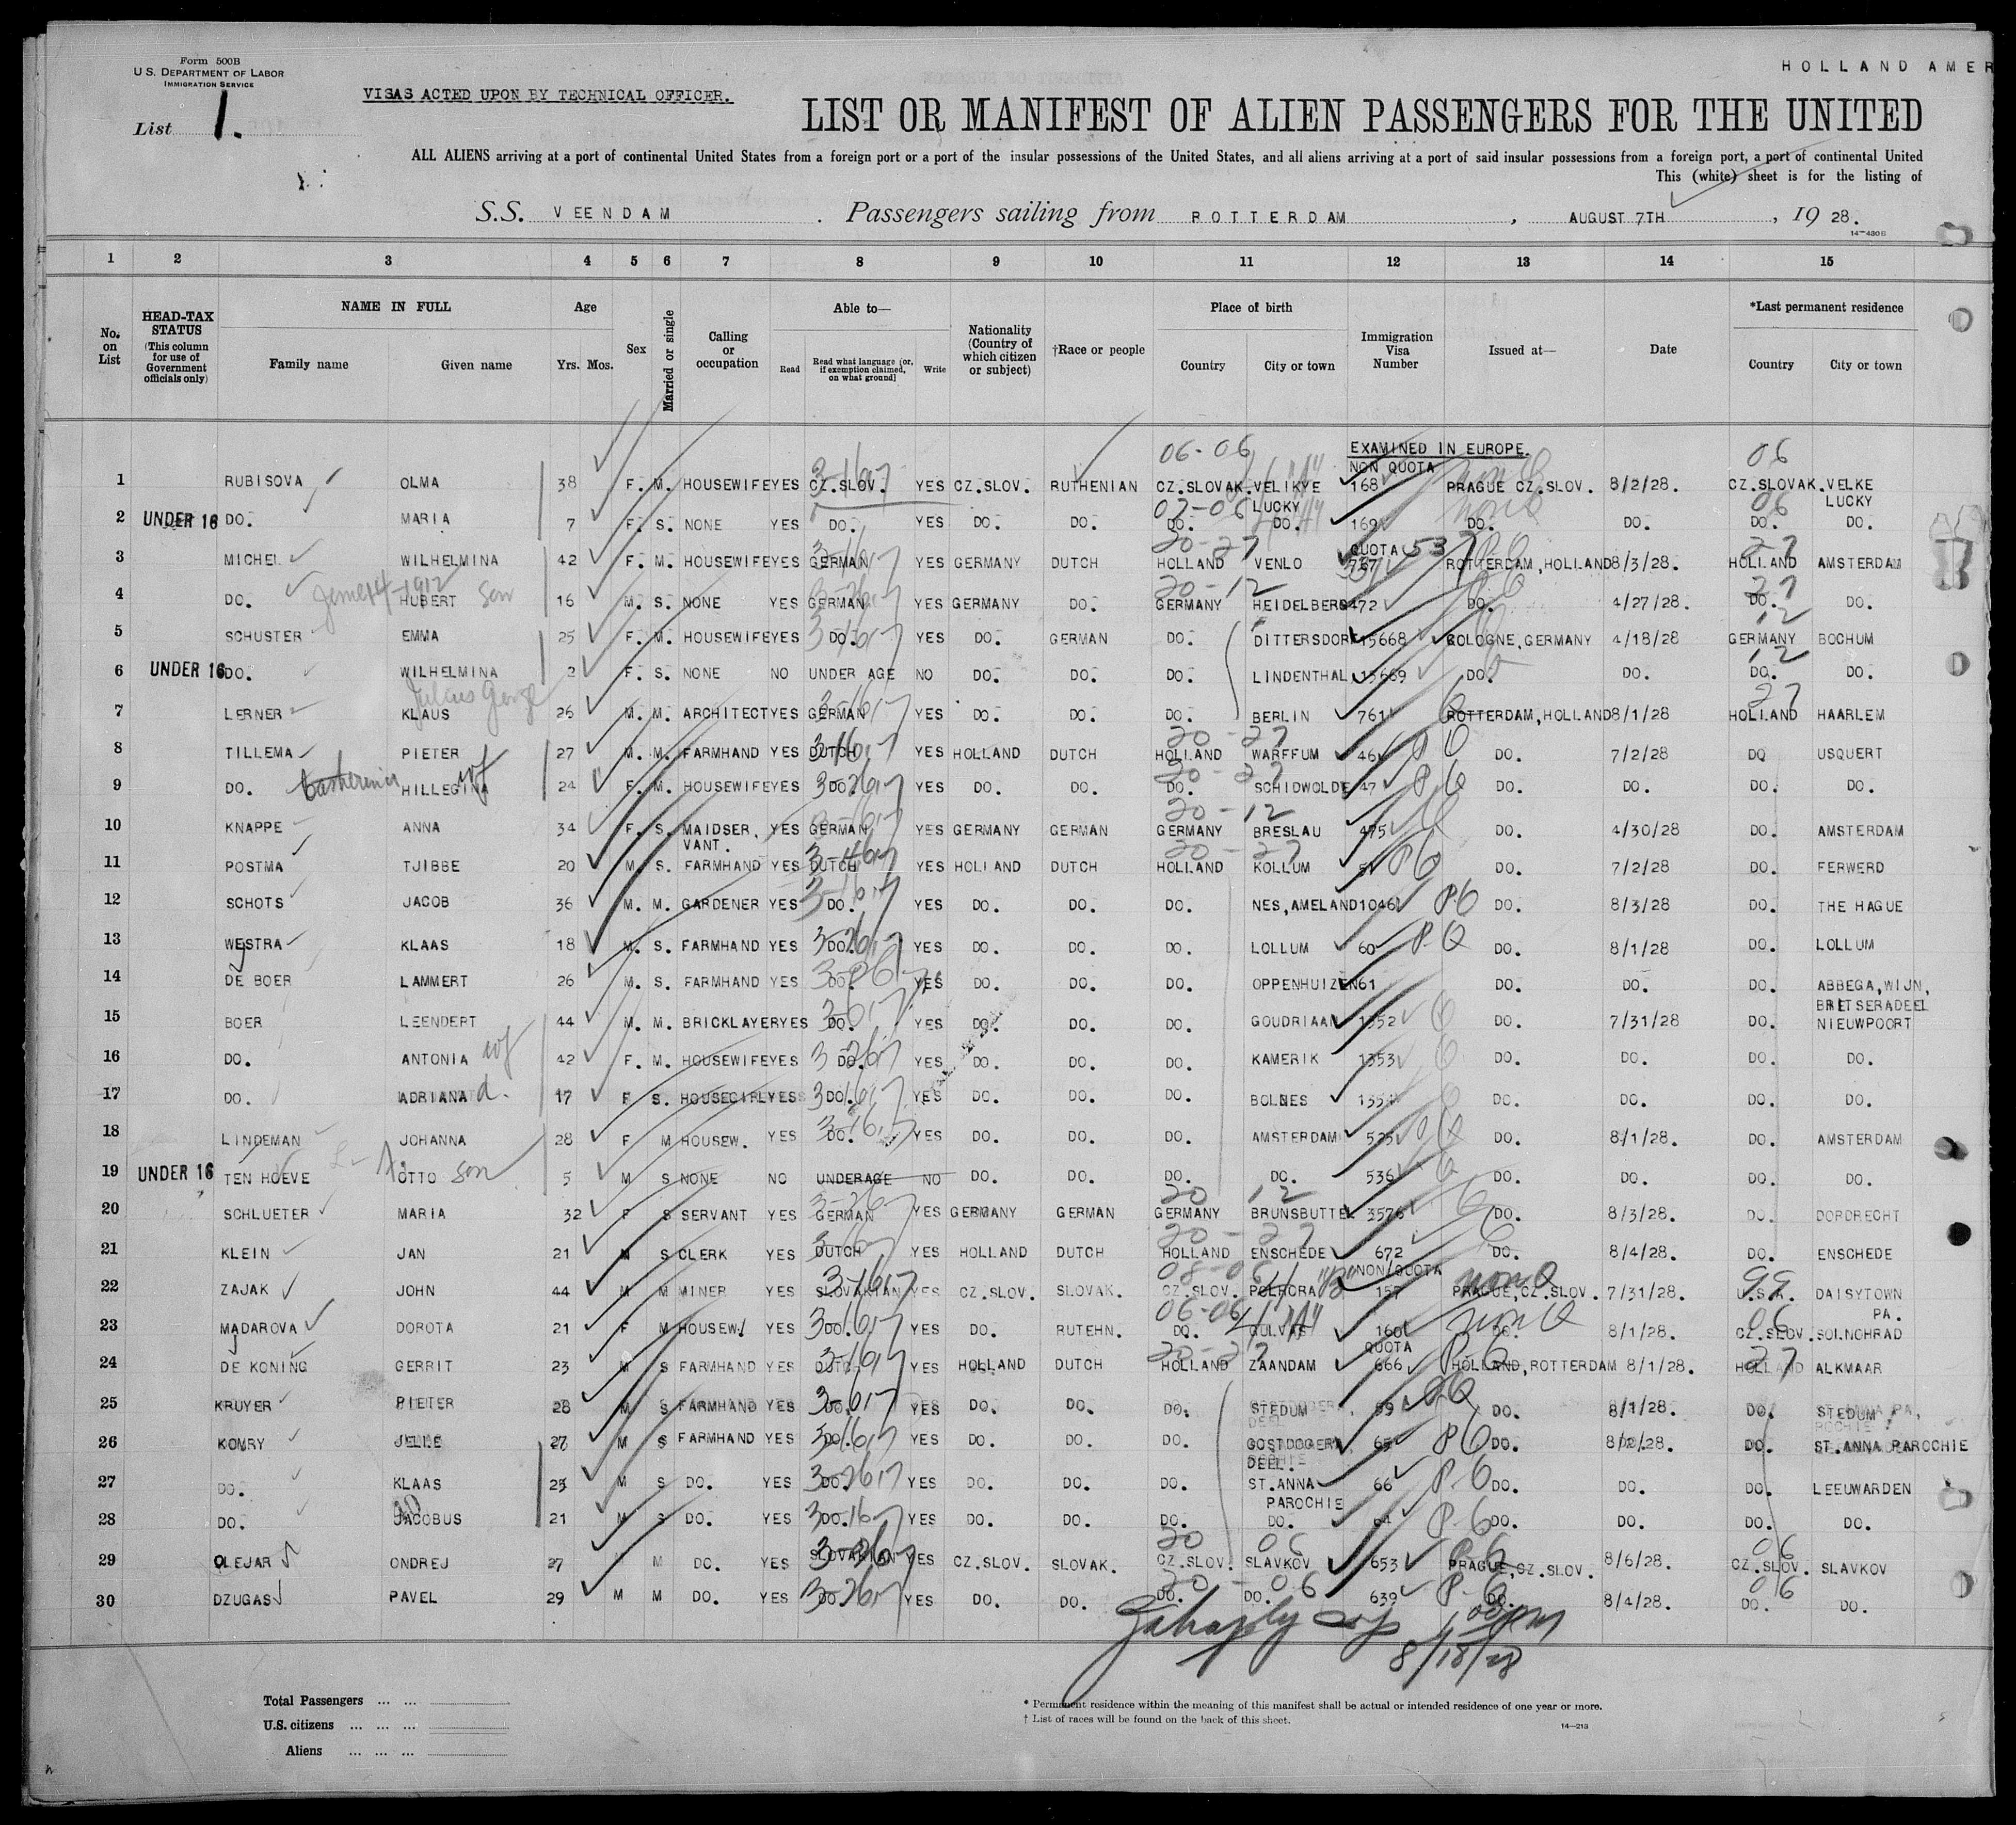 Form 500B
U.S. DEPARTMENT OF LABOR
IMMIGRATION SERVICE
List 1.
VISAS ACTED UPON BY TECHNICAL OFFICER.
HOLLAND AMER
LIST OR MANIFEST OF ALIEN PASSENGERS FOR THE UNITED
ALL ALIENS arriving at a port of continental United States from a foreign port or a port of the insular possessions of the United States, and all aliens arriving at a port of said insular possessions from a foreign port, a port of continental United
This (white) sheet is for the listing of
S.S. VEENDAM . Passengers sailing from ROTTERDAM , AUGUST 7TH , 19 28.
14-430B
1 2 3 4 5 6 7 8 9 10 11 12 13 14 15
No. on List
HEAD-TAX STATUS (This column for use of Government officials only)
NAME IN FULL
Family name Given name
Age
Yrs. Mos.
Sex
Married or single
Calling or occupation
Able to—
Read
Read what language [or, if exemption claimed, on what ground]
Write
Nationality (Country of which citizen or subject)
†Race or people
Place of birth
Country City or town
Immigration Visa Number
Issued at—
Date
*Last permanent residence
Country City or town
EXAMINED IN EUROPE.
NON QUOTA
1 RUBISOVA OLMA 38 F. M. HOUSEWIFE YES CZ.SLOV. YES CZ.SLOV. RUTHENIAN CZ.SLOVAK. VELIKYE LUCKY 168 PRAGUE CZ.SLOV. 8/2/28. CZ.SLOVAK. VELKE LUCKY
2 UNDER 16 DO. MARIA 7 F. S. NONE YES DO. YES DO. DO. DO. DO. 169 DO. DO. DO. DO.
QUOTA 537
3 MICHEL WILHELMINA 42 F. M. HOUSEWIFE YES GERMAN YES GERMANY DUTCH HOLLAND VENLO ROTTERDAM, HOLLAND 8/3/28. HOLLAND AMSTERDAM
4 DO. HUBERT son 16 M. S. NONE YES GERMAN YES GERMANY DO. GERMANY HEIDELBERG 472 DO. 4/27/28. DO. DO.
5 SCHUSTER EMMA 25 F. M. HOUSEWIFE YES DO. YES DO. GERMAN DO. DITTERSDORF 15668 COLOGNE, GERMANY 4/18/28 GERMANY BOCHUM
6 UNDER 16 DO. WILHELMINA 2 F. S. NONE NO UNDER AGE NO DO. DO. DO. LINDENTHAL 15669 DO. DO. DO. DO.
Julius George
7 LERNER KLAUS 26 M. M. ARCHITECT YES GERMAN YES DO. DO. DO. BERLIN 761 ROTTERDAM, HOLLAND 8/1/28 HOLLAND HAARLEM
8 TILLEMA PIETER 27 M. M. FARMHAND YES DUTCH YES HOLLAND DUTCH HOLLAND WARFFUM 46 DO. 7/2/28 DO USQUERT
9 DO. HILLEGINA wf 24 F. M. HOUSEWIFE YES DO. YES DO. DO. DO. SCHIDWOLDE 47 DO. DO. DO. DO.
10 KNAPPE ANNA 34 F. S. MAIDSER, VANT. YES GERMAN YES GERMANY GERMAN GERMANY BRESLAU 475 DO. 4/30/28 DO. AMSTERDAM
11 POSTMA TJIBBE 20 M. S. FARMHAND YES DUTCH YES HOLLAND DUTCH HOLLAND KOLLUM 51 DO. 7/2/28 DO. FERWERD
12 SCHOTS JACOB 36 M. M. GARDENER YES DO. YES DO. DO. DO. NES, AMELAND 1046 DO. 8/3/28 DO. THE HAGUE
13 WESTRA KLAAS 18 M. S. FARMHAND YES DO. YES DO. DO. DO. LOLLUM 60 DO. 8/1/28 DO. LOLLUM
14 DE BOER LAMMERT 26 M. S. FARMHAND YES DO. YES DO. DO. DO. OPPENHUIZEN 61 DO. DO. DO. ABBEGA, WIJN, BRITSERADEEL
15 BOER LEENDERT 44 M. M. BRICKLAYER YES DO. YES DO. DO. DO. GOUDRIAAN 1352 DO. 7/31/28 DO. NIEUWPOORT
16 DO. ANTONIA wf 42 F. M. HOUSEWIFE YES DO. YES DO. DO. DO. KAMERIK 1353 DO. DO. DO. DO.
17 DO. ADRIANA d. 17 F S. HOUSEGIRL YES DO. YES DO. DO. DO. BOLNES 1354 DO. DO. DO. DO.
18 LINDEMAN JOHANNA 28 F M HOUSEW. YES DO. YES DO. DO. DO. AMSTERDAM 535 DO. 8/1/28. DO. AMSTERDAM
19 UNDER 16 TEN HOEVE OTTO son 5 M S NONE NO UNDERAGE NO DO. DO. DO. DO. 536 DO. DO. DO. DO.
20 SCHLUETER MARIA 32 F S SERVANT YES GERMAN YES GERMANY GERMAN GERMANY BRUNSBUTTEL 3576 DO. 8/3/28. DO. DORDRECHT
21 KLEIN JAN 21 M S CLERK YES DUTCH YES HOLLAND DUTCH HOLLAND ENSCHEDE 672 DO. 8/4/28. DO. ENSCHEDE
NON QUOTA
22 ZAJAK JOHN 44 M M MINER YES SLOVAKIAN YES CZ.SLOV. SLOVAK. CZ.SLOV. POLHORA 157 PRAGUE, CZ.SLOV. 7/31/28. U.S.A. DAISYTOWN PA.
23 MADAROVA DOROTA 21 F M HOUSEW. YES DO. YES DO. RUTEHN. DO. GULVAS 160 DO. 8/1/28. CZ.SLOV. SOLNOHRAD
QUOTA
24 DE KONING GERRIT 23 M S FARMHAND YES DUTCH YES HOLLAND DUTCH HOLLAND ZAANDAM 666 HOLLAND, ROTTERDAM 8/1/28. HOLLAND ALKMAAR
25 KRUYER PIETER 28 M S FARMHAND YES DO. YES DO. DO. DO. STEDUM 59 DO. 8/1/28. DO. STEDUM
26 KOMRY JELLE 27 M S FARMHAND YES DO. YES DO. DO. DO. OOSTDOGERA DEEL. 65 DO. 8/2/28. DO. ST.ANNA PAROCHIE
27 DO. KLAAS 25 M S DO. YES DO. YES DO. DO. DO. ST.ANNA PAROCHIE 66 DO. DO. DO. LEEUWARDEN
28 DO. JACOBUS 21 M S DO. YES DO. YES DO. DO. DO. DO. 64 DO. DO. DO. DO.
29 OLEJAR ONDREJ 27 M DO. YES SLOVAKIAN YES CZ.SLOV. SLOVAK. CZ.SLOV. SLAVKOV 653 PRAGUE, CZ.SLOV. 8/6/28. CZ.SLOV. SLAVKOV
30 DZUGAS PAVEL 29 M M DO. YES DO. YES DO. DO. DO. DO. 639 DO. 8/4/28. DO. DO.
8/18/28
Total Passengers ... ...
U.S. citizens ... ... ...
Aliens ... ... ...
* Permanent residence within the meaning of this manifest shall be actual or intended residence of one year or more.
† List of races will be found on the back of this sheet.
14-213